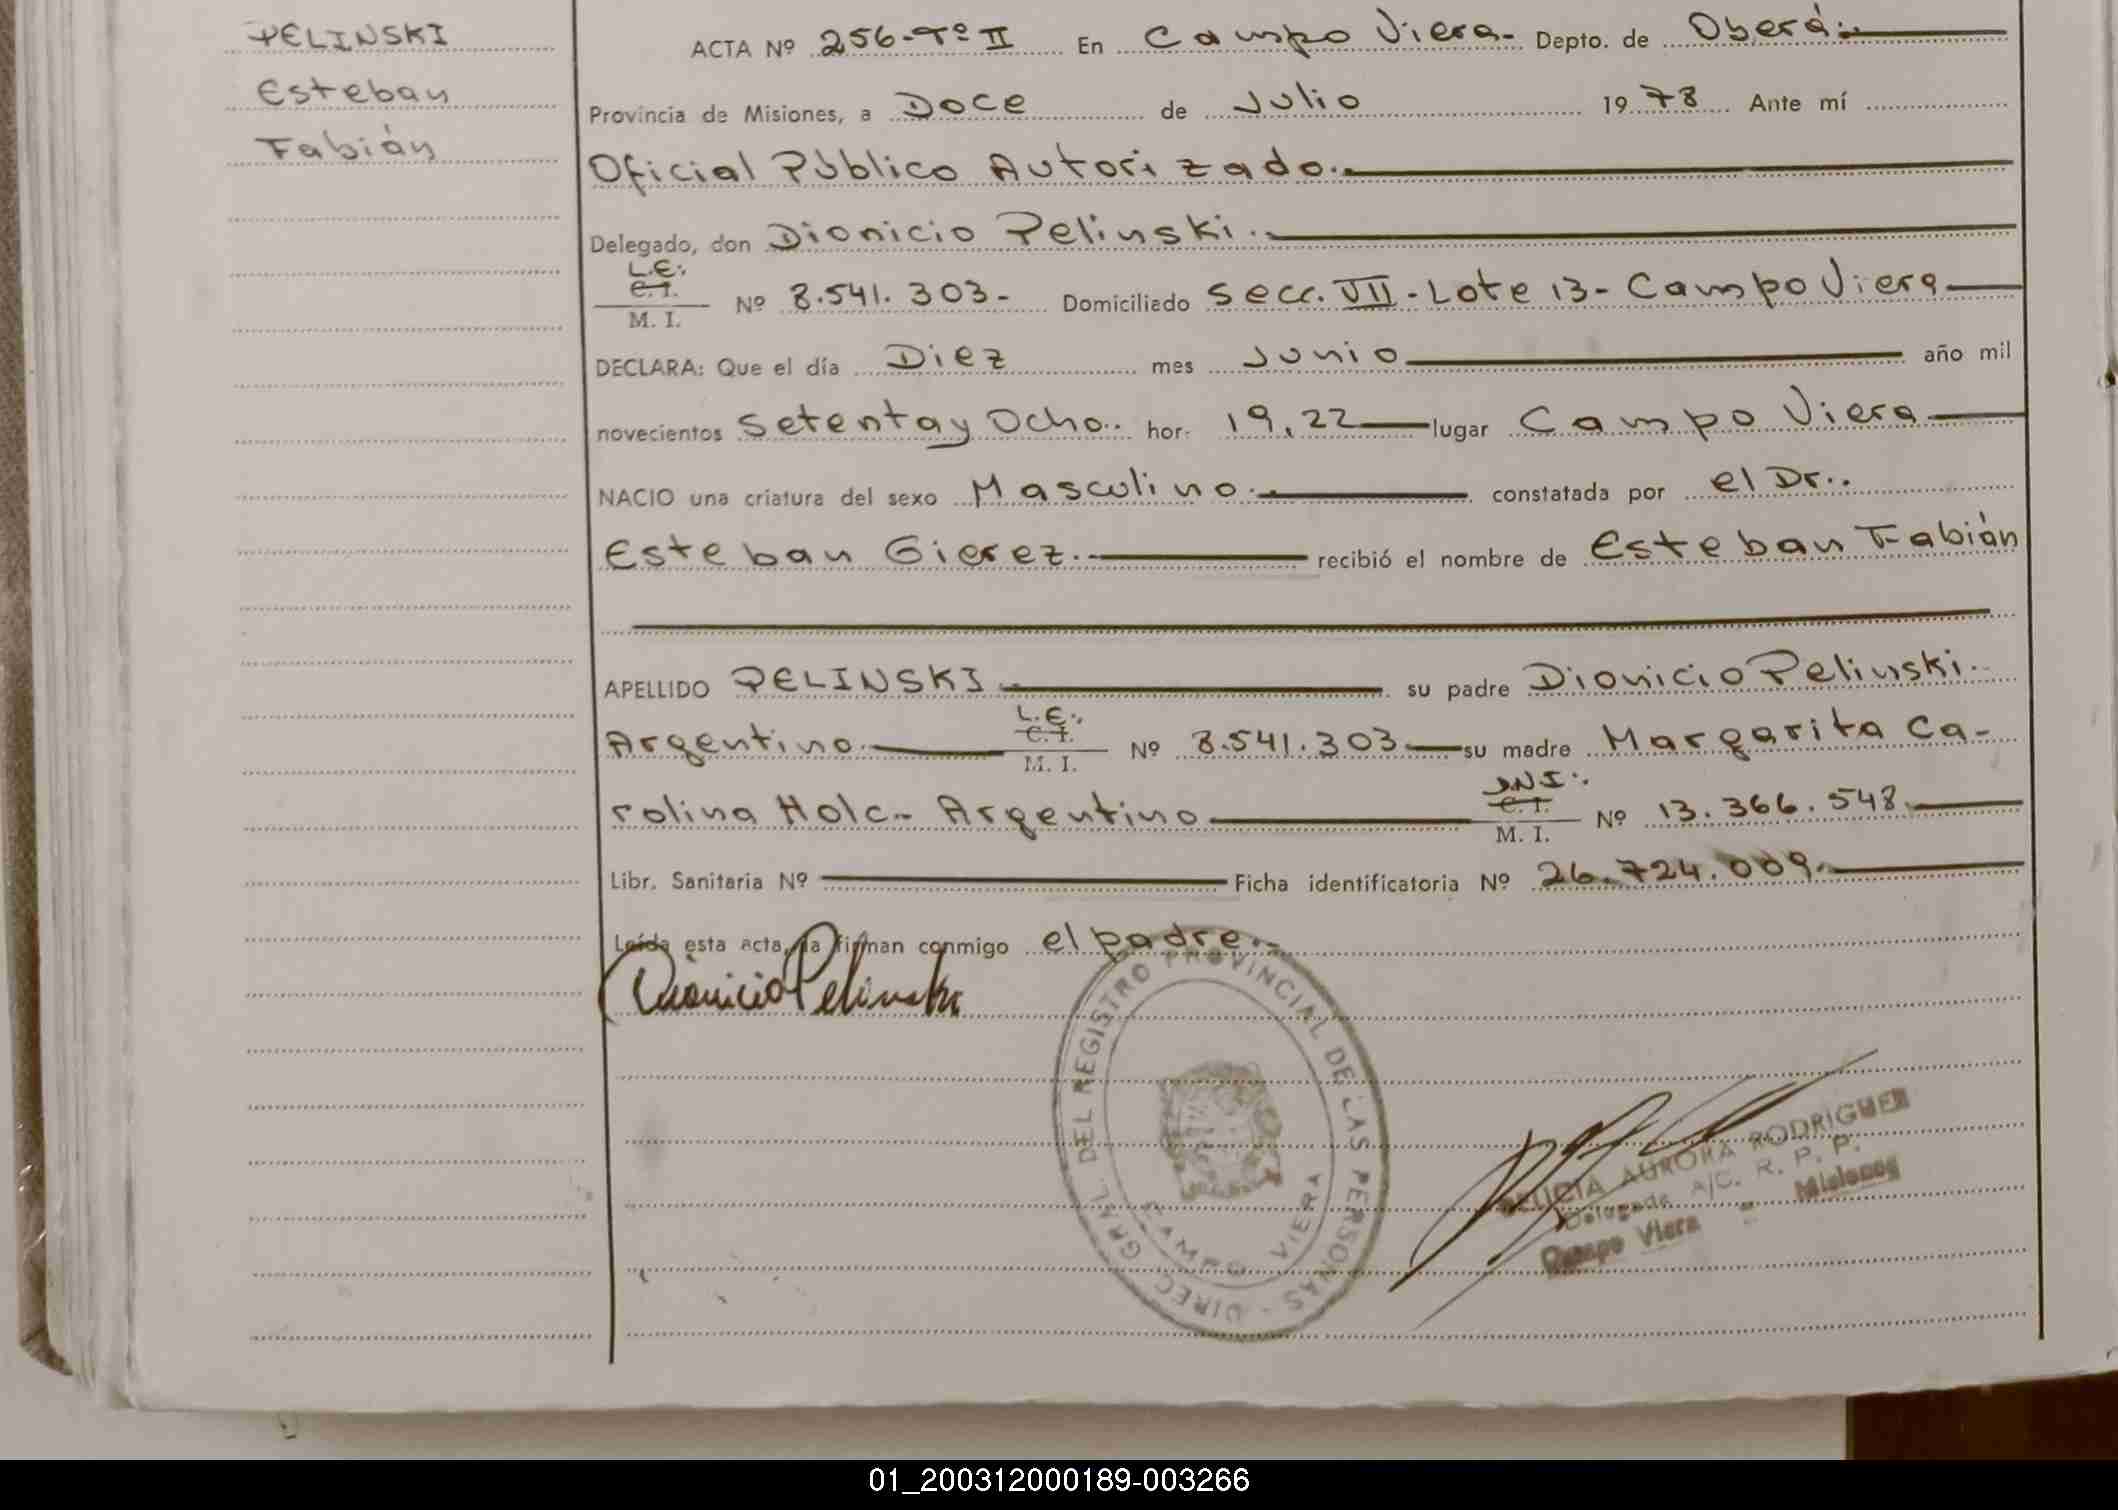 PELINSKI
Esteban
Fabián
ACTA Nº 256-Tº II En Campo Viera- Depto. de Oberá.
Provincia de Misiones, a Doce de Julio 19 78 Ante mí
Oficial Público Autorizado.
Delegado, don Dionicio Pelinski.
L.E.
C. I.
M. I. Nº 8.541.303- Domiciliado Secc. VII - Lote 13 - Campo Viera
DECLARA: Que el día Diez mes Junio año mil
novecientos Setenta y Ocho.. hor. 19,22 lugar Campo Viera
NACIO una criatura del sexo Masculino. constatada por el Dr..
Esteban Gierez. recibió el nombre de Esteban Fabián
APELLIDO PELINSKI su padre Dionicio Pelinski.
L.E.
C. I.
Argentino. M. I. Nº 8.541.303 su madre Margarita Ca-
D.N.I.
C. I.
rolina Holc.. Argentino M. I. Nº 13.366.548
Libr. Sanitaria Nº Ficha identificatoria Nº 26.724.009.
Leída esta acta, la firman conmigo el padre.-
Dionicio Pelinski
DIREC. GRAL. DEL REGISTRO PROVINCIAL DE LAS PERSONAS -
CAMPO VIERA
AURORA RODRIGUEZ
Delegada A/C. R. P. P.
Campo Viera - Misiones
01_200312000189-003266